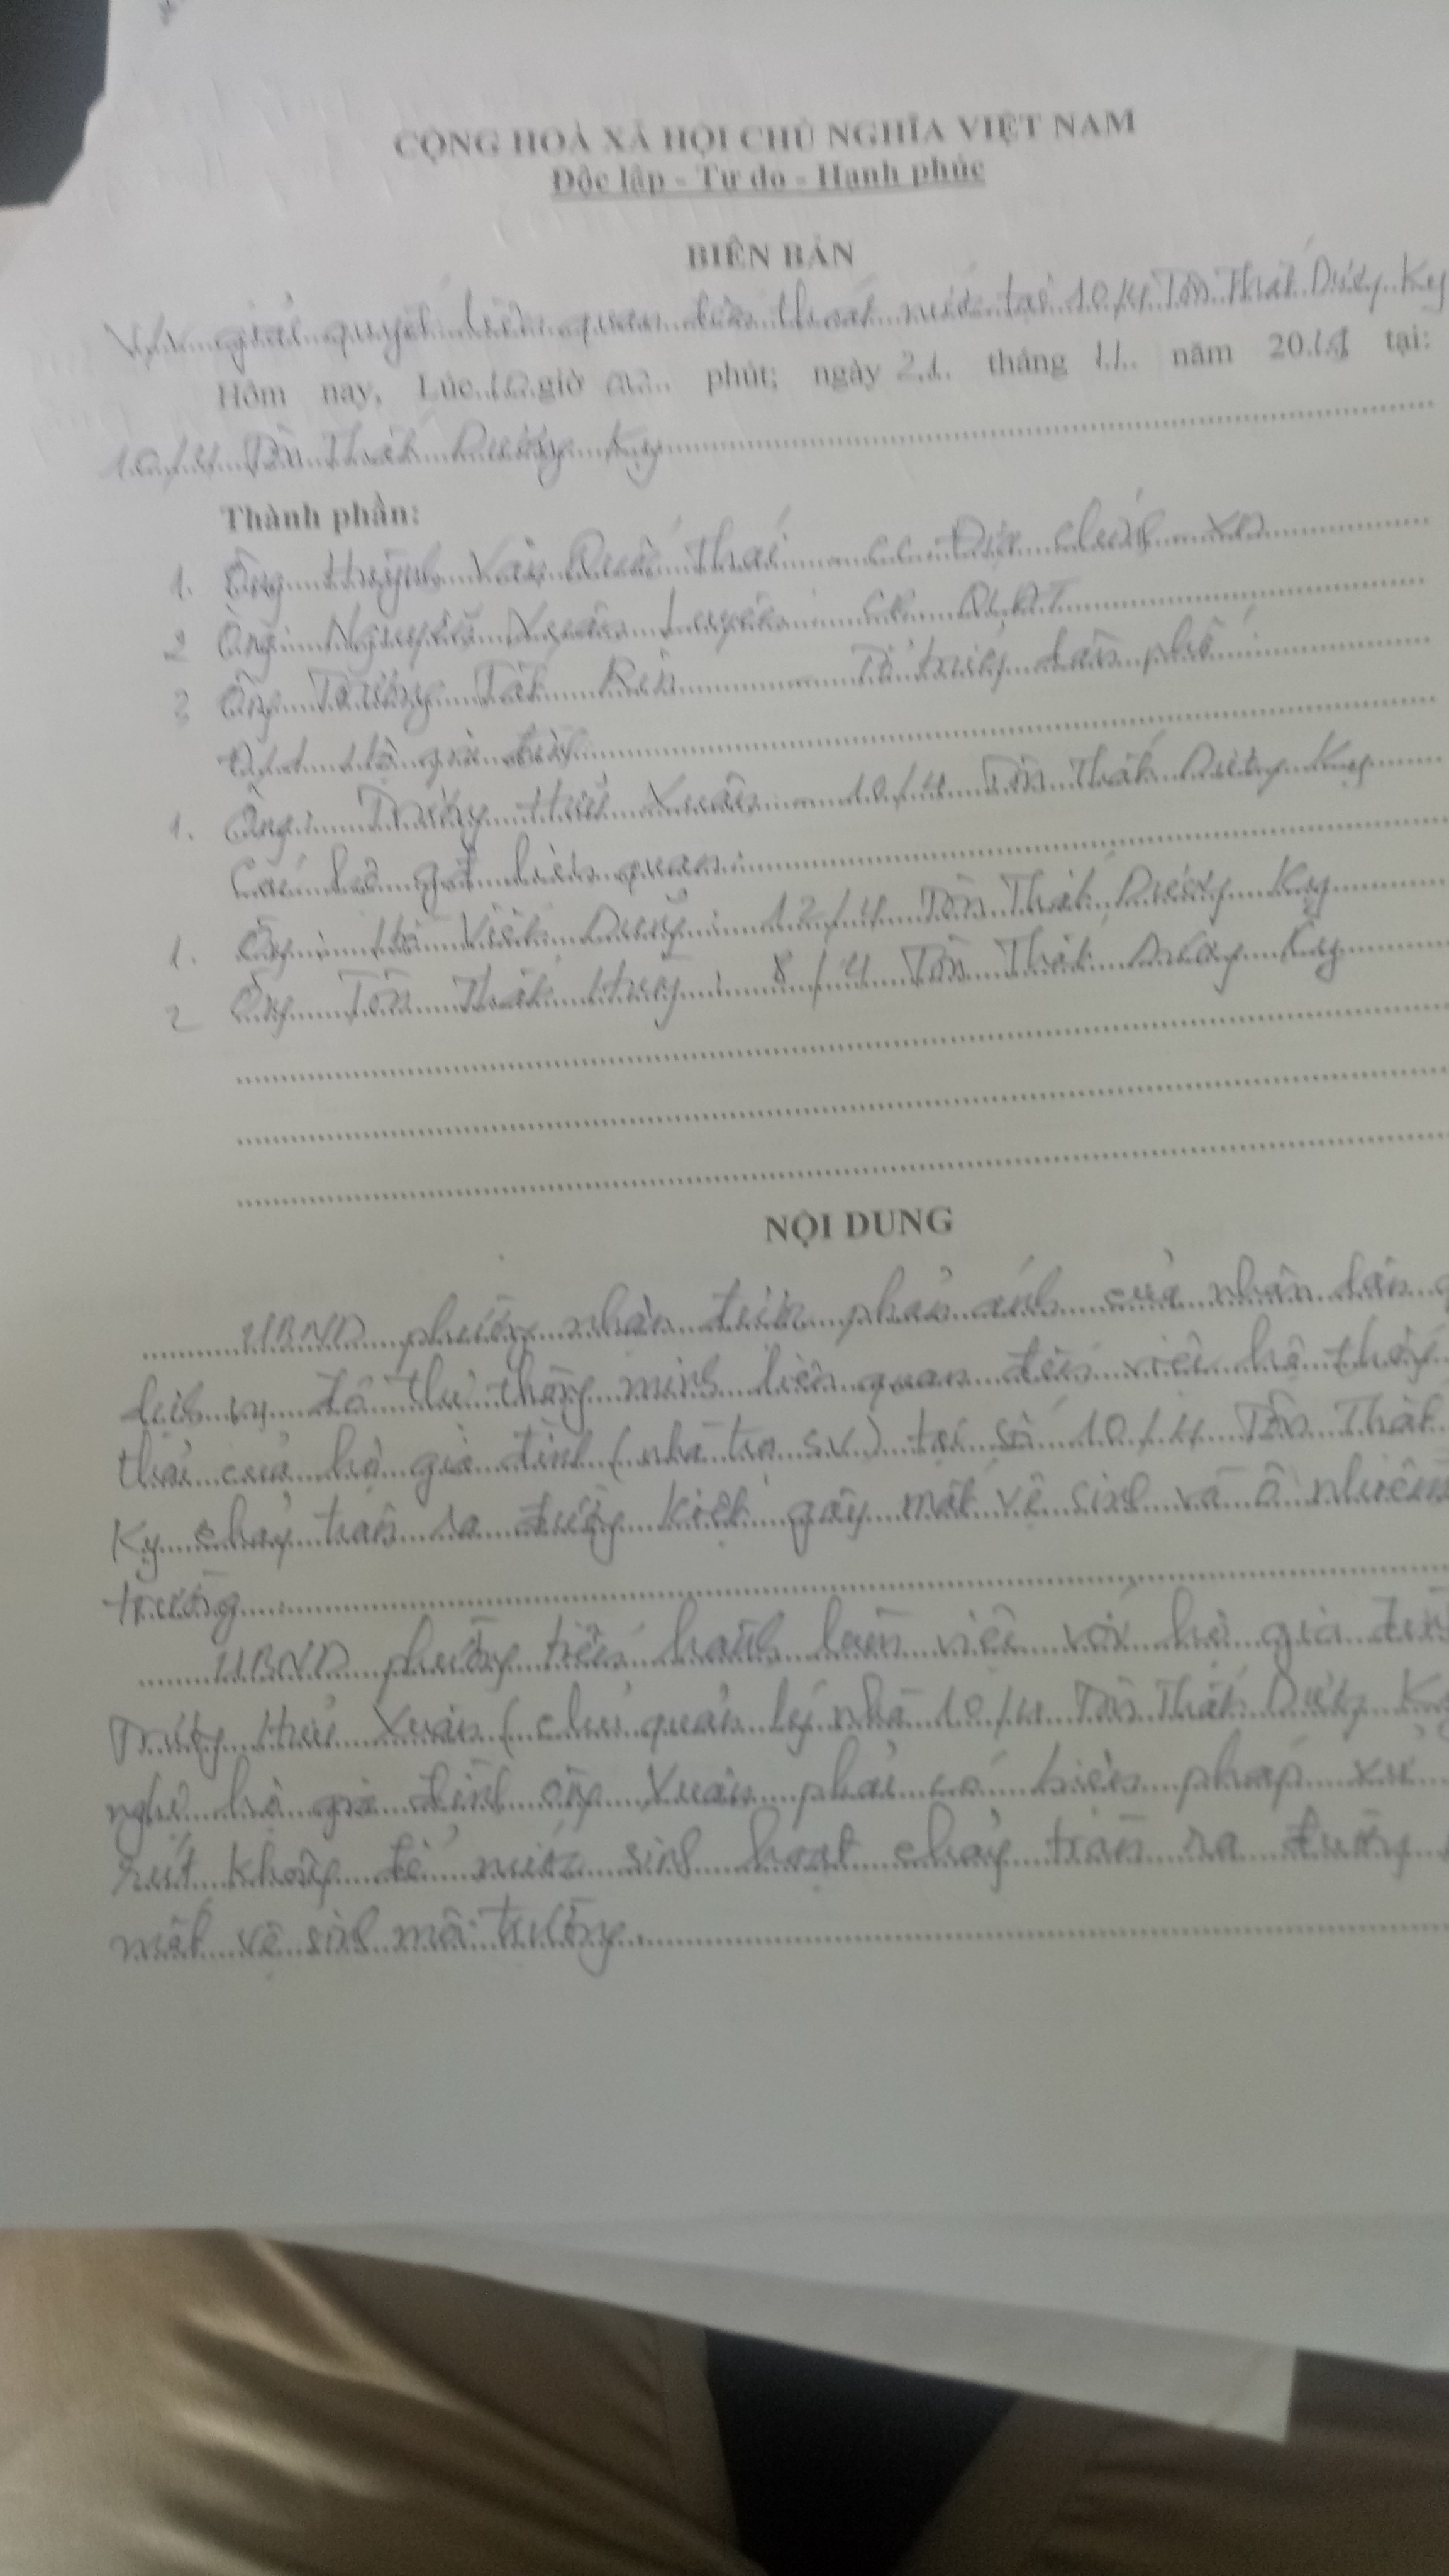 CỘNG HOÀ XÃ HỘI CHỦ NGHĨA VIỆT NAM
Độc lập - Tự do - Hạnh phúc
BIÊN BẢN
V/v giải quyết liên quan đến thoát nước tại 10/4 Tôn Thất Dương Kỵ
Hôm nay, Lúc 10 giờ 00 phút; ngày 21 tháng 11 năm 2019 tại:
10/4 Tôn Thất Dương Kỵ
Thành phần:
1. Ông Huỳnh Văn Quốc Thái - CC Địa chính XD
2 Ông: Nguyễn Xuân CB QLĐT
3 Ông Trương Tất Tổ trưởng dân phố
Đ/d hộ gia đình
1. Ông: Trương Hữu Xuân - 10/4 Tôn Thất Dương Kỵ
Các hộ gđ liên quan:
1. Ông: Hồ Viết Dũng: 12/4 Tôn Thất Dương Kỵ
2 Ông Tôn Thất Huy: 8/4 Tôn Thất Dương Kỵ
NỘI DUNG
UBND phường nhận được phản ánh của nhân dân
dịch vụ đô thị thông minh liên quan đến việc hệ thống
thải của hộ gia đình (nhà trọ SV) tại số 10/4 Tôn Thất
Kỵ chảy tràn ra đường kiệt gây mất vệ sinh và ô nhiễm
trường.
UBND phường tiến hành làm việc với hộ gia đình
Trương Hữu Xuân (chủ quản lý nhà 10/4 Tôn Thất Dương Kỵ
nghị hộ gia đình ông Xuân phải có biện pháp xử
rút không để nước sinh hoạt chảy tràn ra đường
mất vệ sinh môi trường.